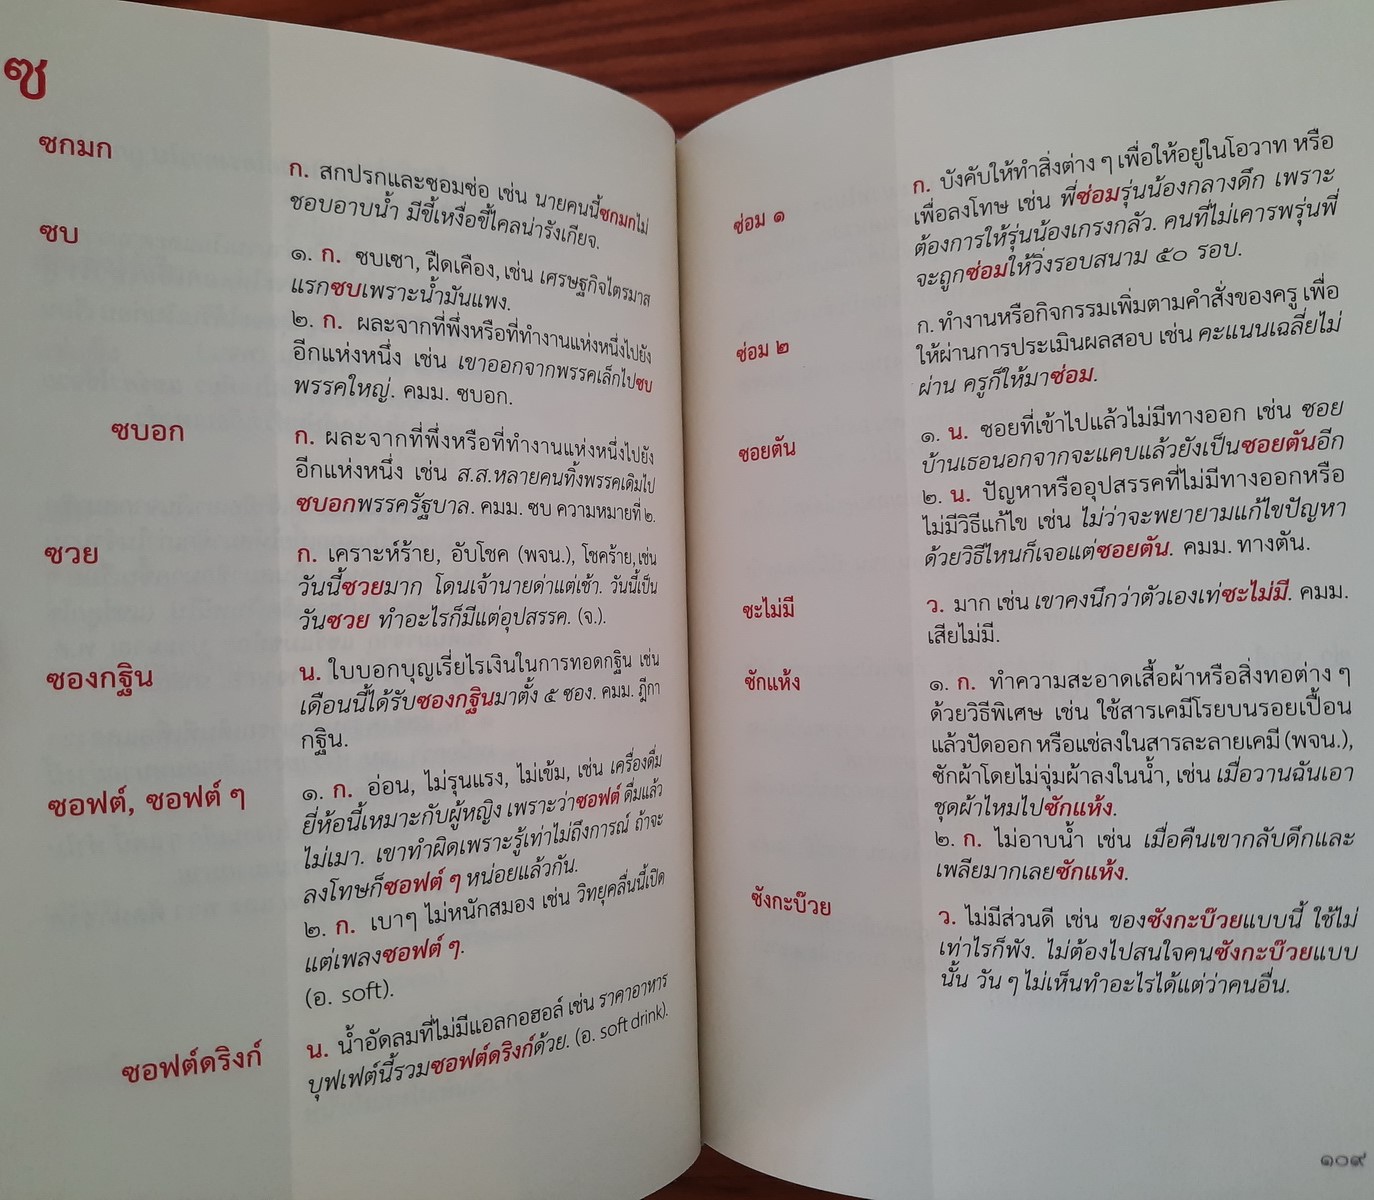 ซ
ซกมก
ก. สกปรกและซอมซ่อ เช่น นายคนนี้ซกมกไม่
ชอบอาบน้ำ มีขี้เหงื่อขี้ไคลน่ารังเกียจ.
ซบ
๑. ก. ซบเซา, ฝืดเคือง, เช่น เศรษฐกิจไตรมาส
แรกซบเพราะน้ำมันแพง.
๒. ก. ผละจากที่พึ่งหรือที่ทำงานแห่งหนึ่งไปยัง
อีกแห่งหนึ่ง เช่น เขาออกจากพรรคเล็กไปซบ
พรรคใหญ่. คมม. ซบอก.
ซบอก
ก. ผละจากที่พึ่งหรือที่ทำงานแห่งหนึ่งไปยัง
อีกแห่งหนึ่ง เช่น ส.ส.หลายคนทิ้งพรรคเดิมไป
ซบอกพรรครัฐบาล. คมม. ซบ ความหมายที่ ๒.
ซวย
ก. เคราะห์ร้าย, อับโชค (พจน.), โชคร้าย, เช่น
วันนี้ซวยมาก โดนเจ้านายด่าแต่เช้า. วันนี้เป็น
วันซวย ทำอะไรก็มีแต่อุปสรรค. (จ.).
ซองกฐิน
น. ใบบอกบุญเรี่ยไรเงินในการทอดกฐิน เช่น
เดือนนี้ได้รับซองกฐินมาตั้ง ๕ ซอง. คมม. ฎีกา
กฐิน.
ซอฟต์, ซอฟต์ ๆ
๑. ก. อ่อน, ไม่รุนแรง, ไม่เข้ม, เช่น เครื่องดื่ม
ยี่ห้อนี้เหมาะกับผู้หญิง เพราะว่าซอฟต์ ดื่มแล้ว
ไม่เมา. เขาทำผิดเพราะรู้เท่าไม่ถึงการณ์ ถ้าจะ
ลงโทษก็ซอฟต์ ๆ หน่อยแล้วกัน.
๒. ก. เบาๆ ไม่หนักสมอง เช่น วิทยุคลื่นนี้เปิด
แต่เพลงซอฟต์ ๆ.
(อ. soft).
ซอฟต์ดริงก์
น. น้ำอัดลมที่ไม่มีแอลกอฮอล์ เช่น ราคาอาหาร
บุฟเฟต์นี้รวมซอฟต์ดริงก์ด้วย. (อ. soft drink).
ซ่อม ๑
ก. บังคับให้ทำสิ่งต่าง ๆ เพื่อให้อยู่ในโอวาท หรือ
เพื่อลงโทษ เช่น พี่ซ่อมรุ่นน้องกลางดึก เพราะ
ต้องการให้รุ่นน้องเกรงกลัว. คนที่ไม่เคารพรุ่นพี่
จะถูกซ่อมให้วิ่งรอบสนาม ๕๐ รอบ.
ซ่อม ๒
ก. ทำงานหรือกิจกรรมเพิ่มตามคำสั่งของครู เพื่อ
ให้ผ่านการประเมินผลสอบ เช่น คะแนนเฉลี่ยไม่
ผ่าน ครูก็ให้มาซ่อม.
ซอยตัน
๑. น. ซอยที่เข้าไปแล้วไม่มีทางออก เช่น ซอย
บ้านเธอนอกจากจะแคบแล้วยังเป็นซอยตันอีก
๒. น. ปัญหาหรืออุปสรรคที่ไม่มีทางออกหรือ
ไม่มีวิธีแก้ไข เช่น ไม่ว่าจะพยายามแก้ไขปัญหา
ด้วยวิธีไหนก็เจอแต่ซอยตัน. คมม. ทางตัน.
ซะไม่มี
ว. มาก เช่น เขาคงนึกว่าตัวเองเท่ซะไม่มี. คมม.
เสียไม่มี.
ซักแห้ง
๑. ก. ทำความสะอาดเสื้อผ้าหรือสิ่งทอต่าง ๆ
ด้วยวิธีพิเศษ เช่น ใช้สารเคมีโรยบนรอยเปื้อน
แล้วปัดออก หรือแช่ลงในสารละลายเคมี (พจน.),
ซักผ้าโดยไม่จุ่มผ้าลงในน้ำ, เช่น เมื่อวานฉันเอา
ชุดผ้าไหมไปซักแห้ง.
๒. ก. ไม่อาบน้ำ เช่น เมื่อคืนเขากลับดึกและ
เพลียมากเลยซักแห้ง.
ซังกะบ๊วย
ว. ไม่มีส่วนดี เช่น ของซังกะบ๊วยแบบนี้ ใช้ไม่
เท่าไรก็พัง. ไม่ต้องไปสนใจคนซังกะบ๊วยแบบ
นั้น วัน ๆ ไม่เห็นทำอะไรได้แต่ว่าคนอื่น.
๑๐๙